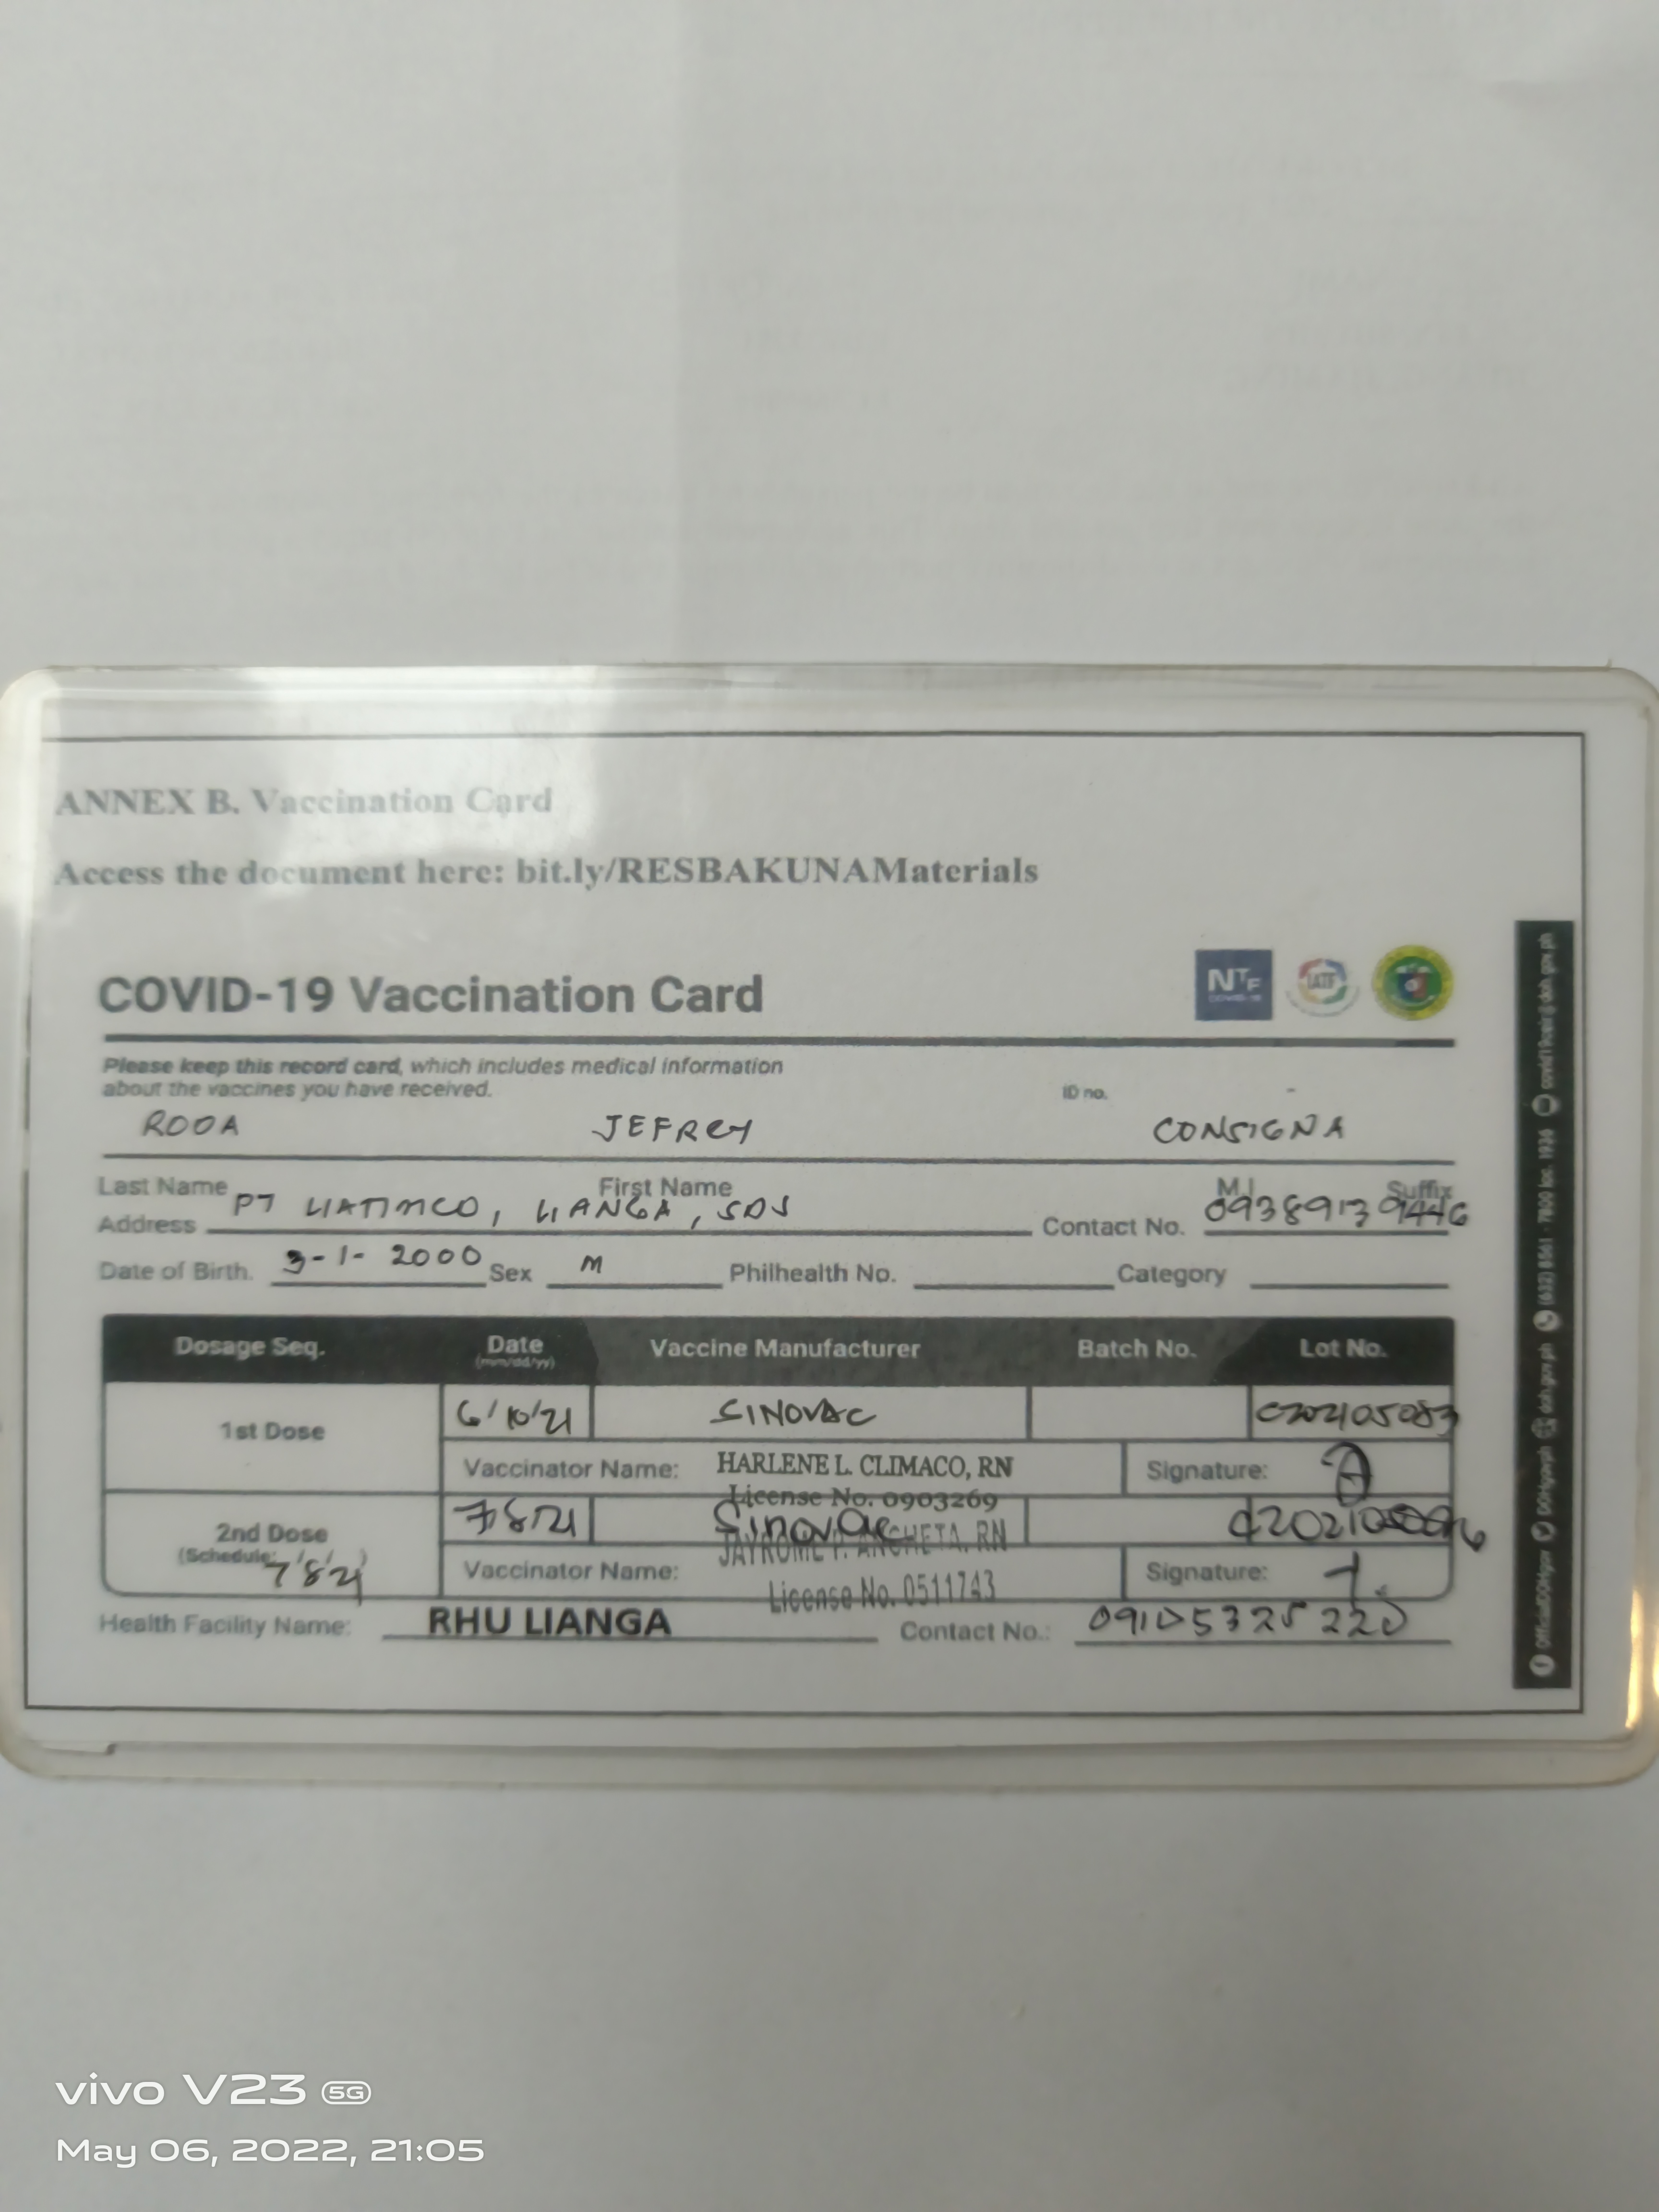 ANNEX B. Vaccination Card
Access the document here: bit.ly/RESBAKUNAMaterials
COVID-19 Vaccination Card
NTF
COVID-19
IATF
Please keep this record card, which includes medical information
about the vaccines you have received.
ID no. -
ROOA JEFREY CONSIGNA
Last Name First Name M.I. Suffix
Address PT LIATIMCO, LIANGA, SDS Contact No.
Date of Birth. 3-1-2000 Sex M Philhealth No. Category
Dosage Seq. Date Vaccine Manufacturer Batch No. Lot No.
(mm/dd/yy)
1st Dose 6/10/21 SINOVAC
Vaccinator Name: HARLENE L. CLIMACO, RN Signature:
License No. 0903269
2nd Dose 7/8/21 Sinovac
(Schedule: 7/8/21)
Vaccinator Name: JAYROME P. ANCHETA, RN Signature:
License No. 0511743
Health Facility Name: RHU LIANGA Contact No.:
OfficialDOHgov DOHgovph doh.gov.ph (632) 8561-7800 loc. 1936 covid19veir@doh.gov.ph
vivo V23 5G
May 06, 2022, 21:05